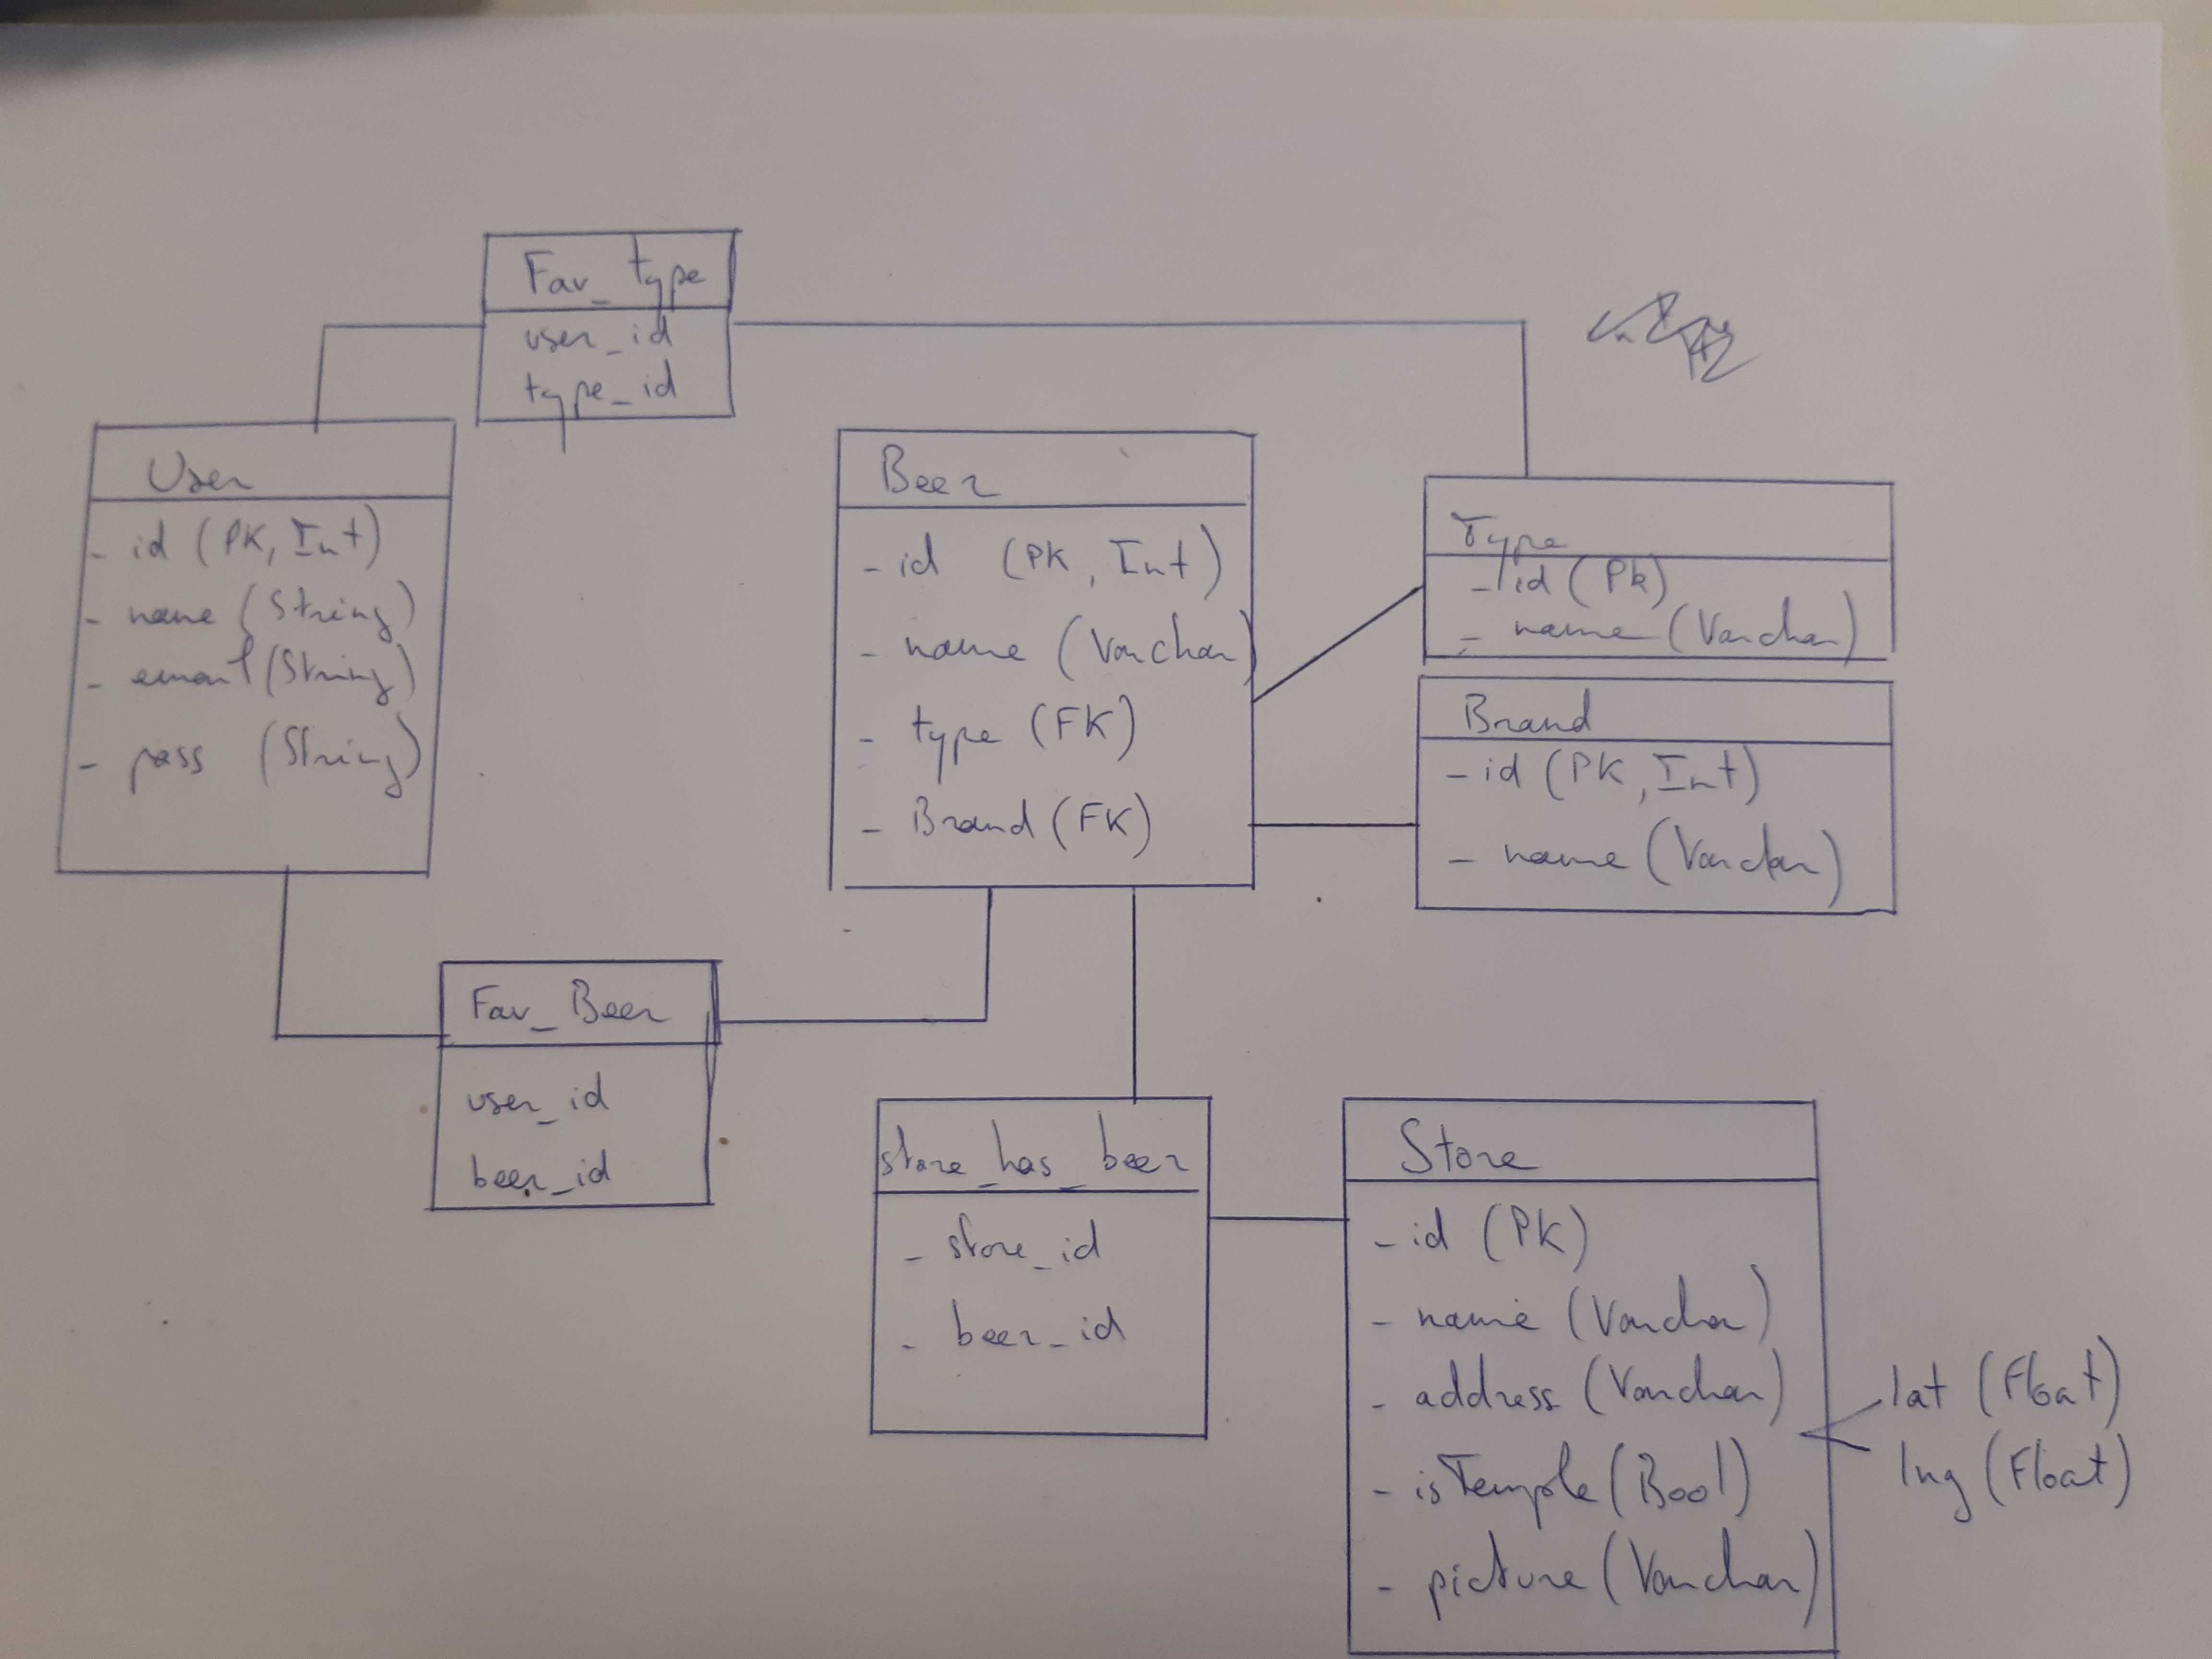 Fav_type
user_id
type_id
User
- id (PK, Int)
- name (String)
- email (String)
- pass (String)
Beer
- id (PK, Int)
- name (Varchar)
- type (FK)
- Brand (FK)
Type
- id (Pk)
- name (Varchar)
Brand
- id (PK, Int)
- name (Varchar)
Fav_Beer
user_id
beer_id
store_has_beer
- store_id
- beer_id
Store
- id (PK)
- name (Varchar)
- address (Varchar)
- isTemple (Bool)
- picture (Varchar)
lat (Float)
lng (Float)